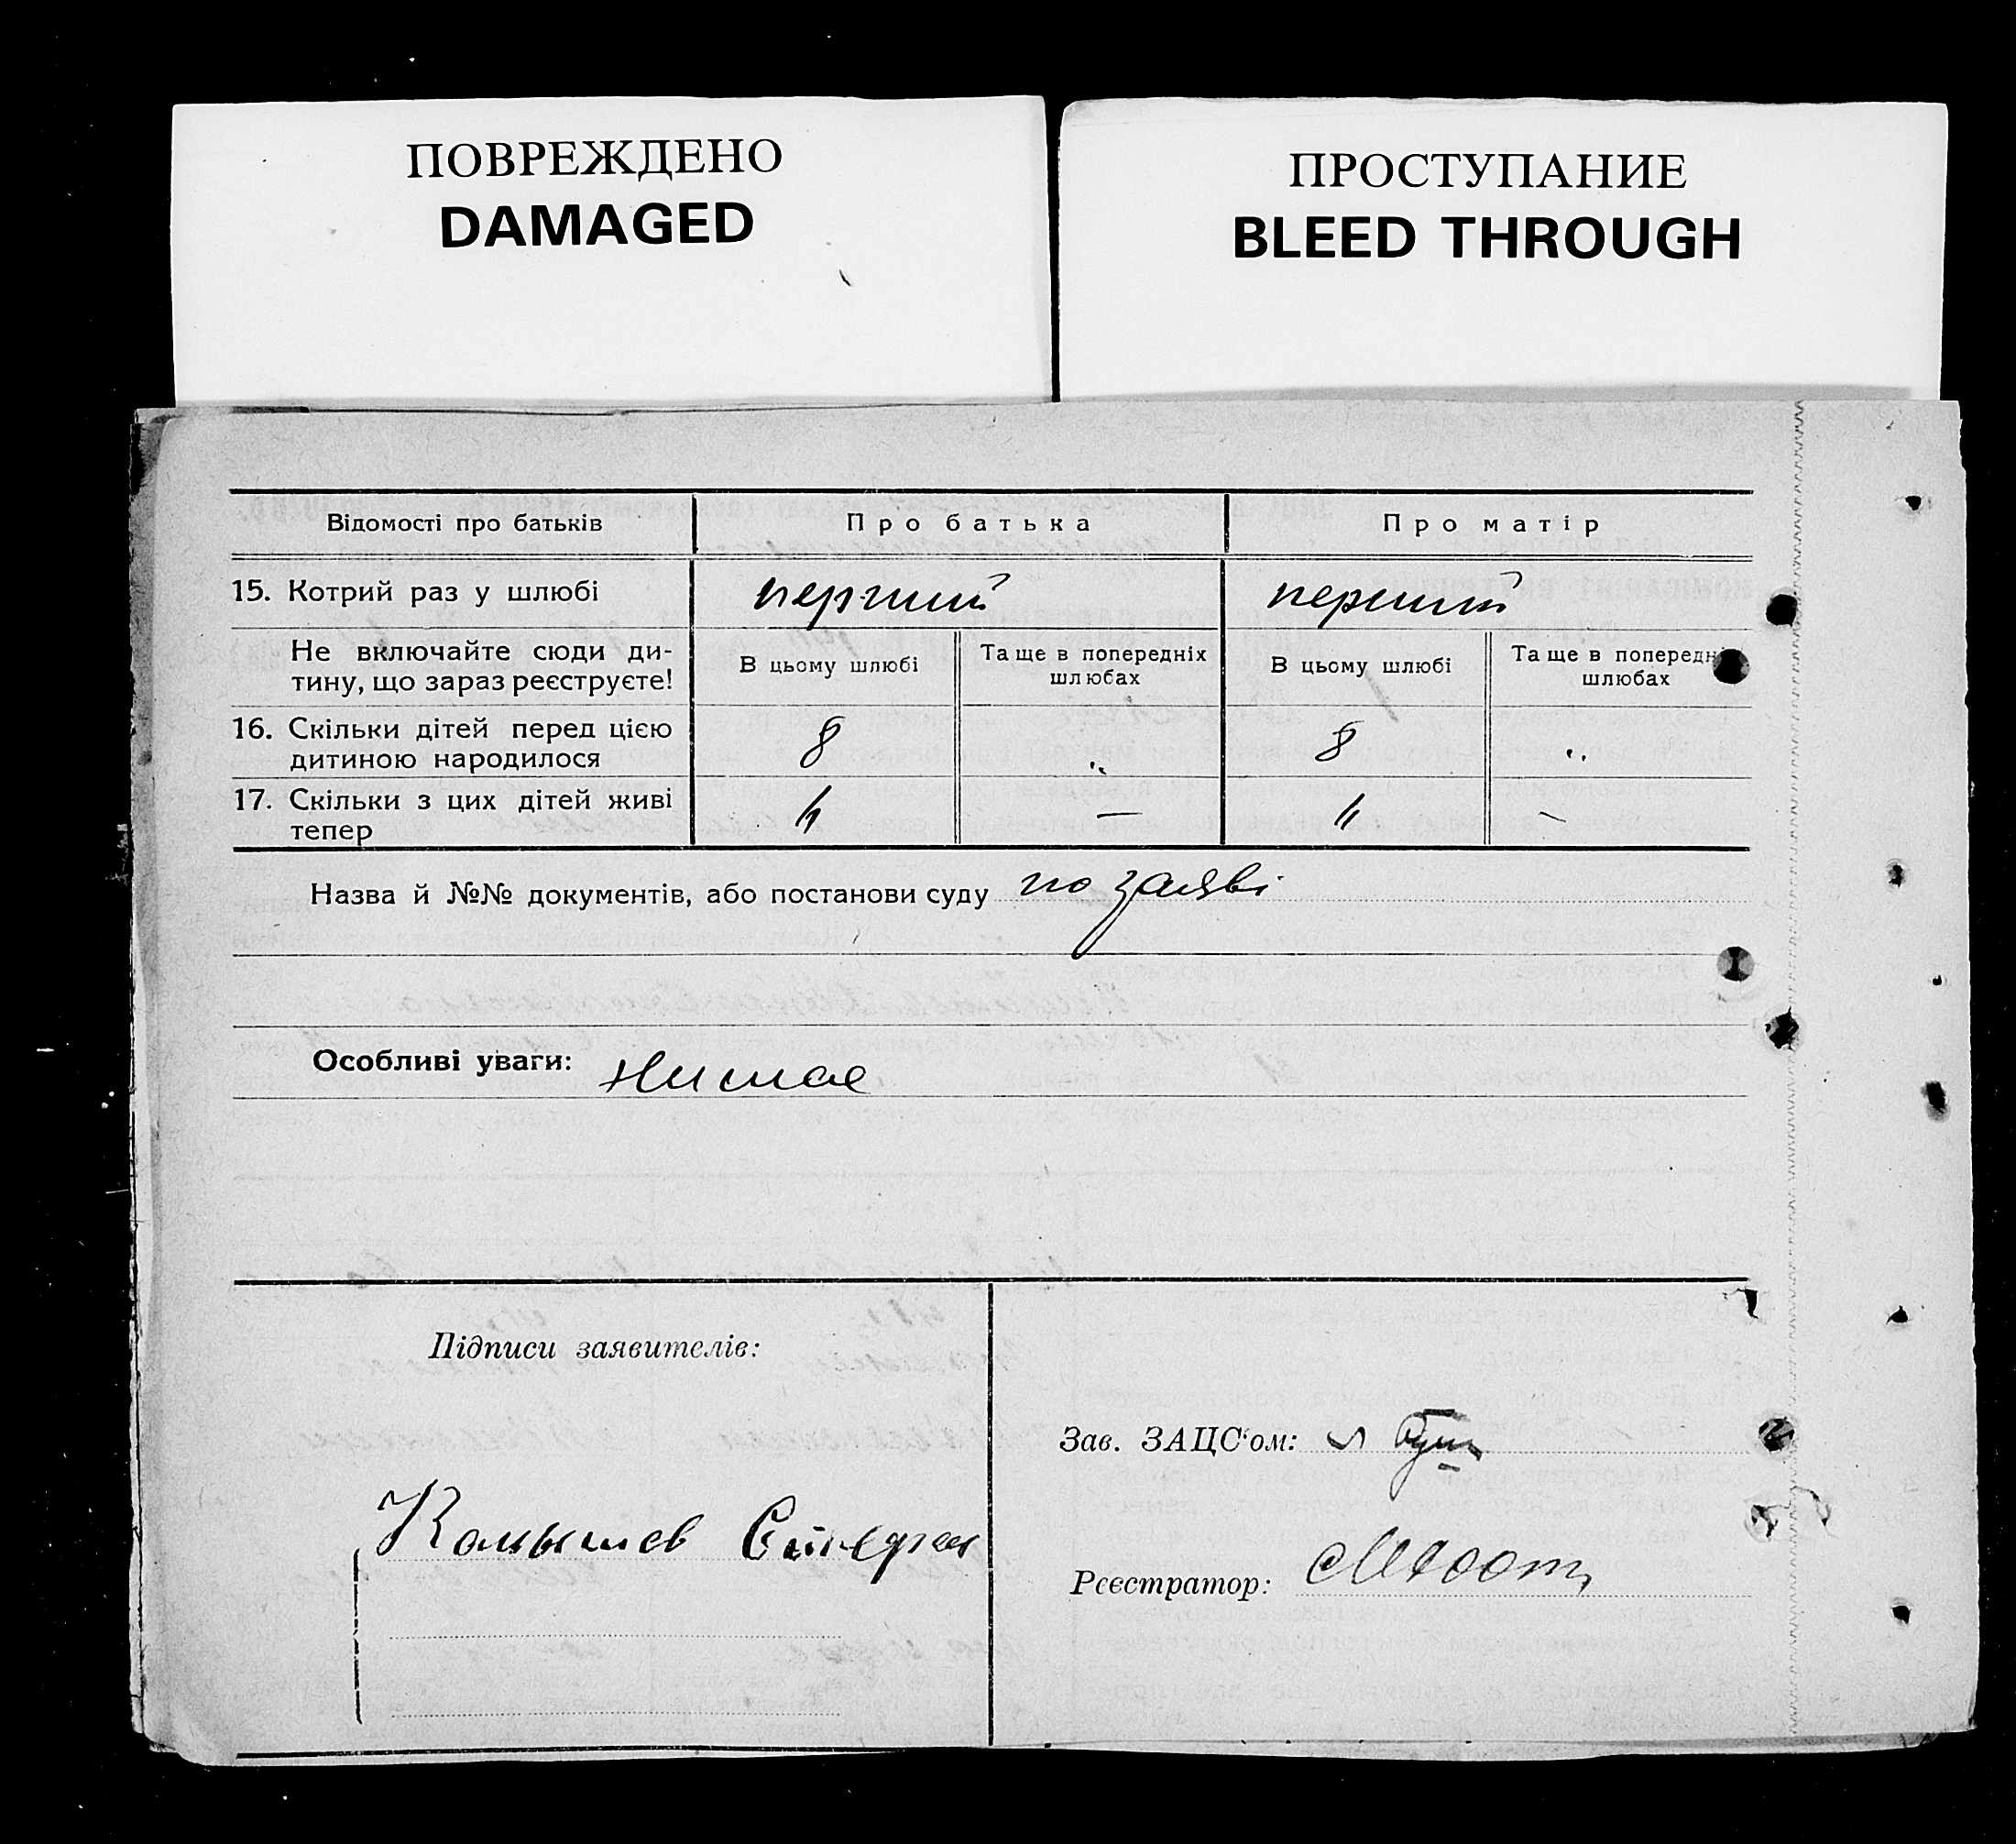 ПОВРЕЖДЕНО
DAMAGED
ПРОСТУПАНИЕ
BLEED THROUGH
Відомості про батьків Про батька Про матір
15. Котрий раз у шлюбі перший перший
Не включайте сюди ди-
тину, що зараз реєструєте!
В цьому шлюбі Та ще в попередніх
шлюбах
В цьому шлюбі Та ще в попередн
шлюбах
16. Скільки дітей перед цією
дитиною народилося 8 „ 8 „
17. Скільки з цих дітей живі
тепер 4 — 4 —
Назва й №№ документів, або постанови суду по заяві
Особливі уваги: немає
Підписи заявителів:
Камышев Стефан
Зав. ЗАЦС'ом:
Реєстратор: